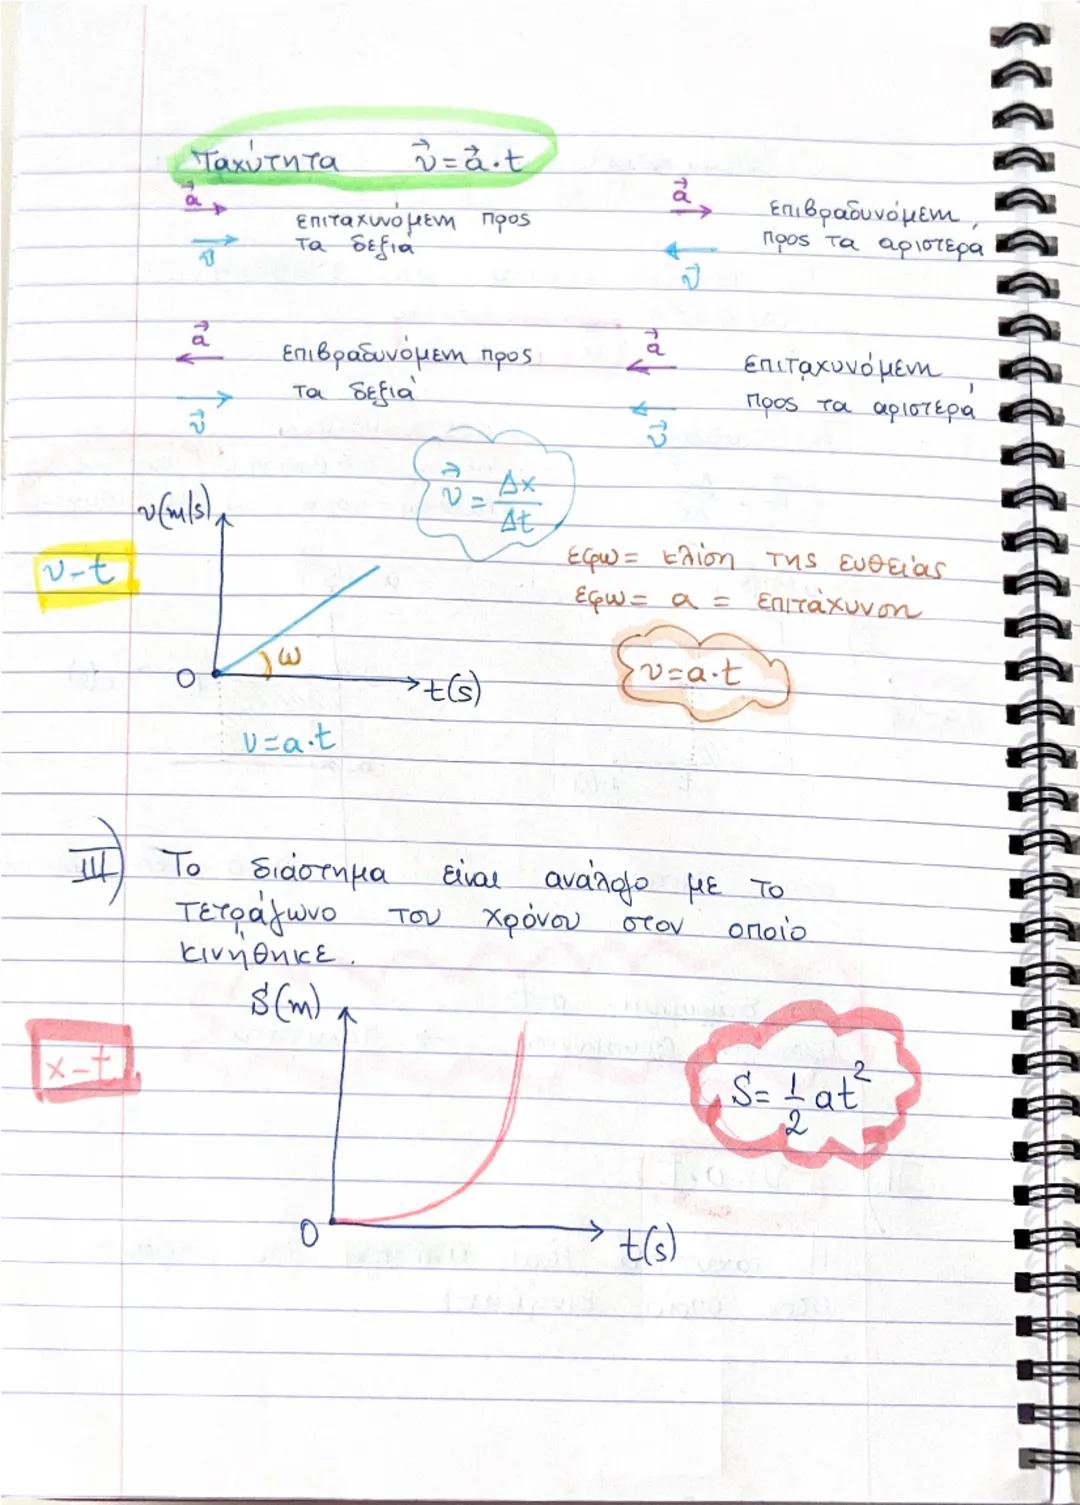 Ταχύτητα v⃗ = a⃗ · t
a⃗
επιταχυνόμενη προς
τα δεξιά
v⃗
a⃗
επιβραδυνόμενη
προς τα αριστερά
v⃗
a⃗
επιβραδυνόμενη προς
τα δεξιά
v⃗
a⃗
επιταχυνόμενη
προς τα αριστερά
v⃗
v⃗ = Δx/Δt
v-t
v(m/s)
ω
0
t(s)
v=a·t
εφω= κλίση της ευθείας
εφω= a = επιτάχυνση
v=a·t
III) Το διάστημα είναι ανάλογο με το
τετράγωνο του χρόνου στον οποίο
κινήθηκε.
x-t
S(m)
0
t(s)
S= 1/2 at²